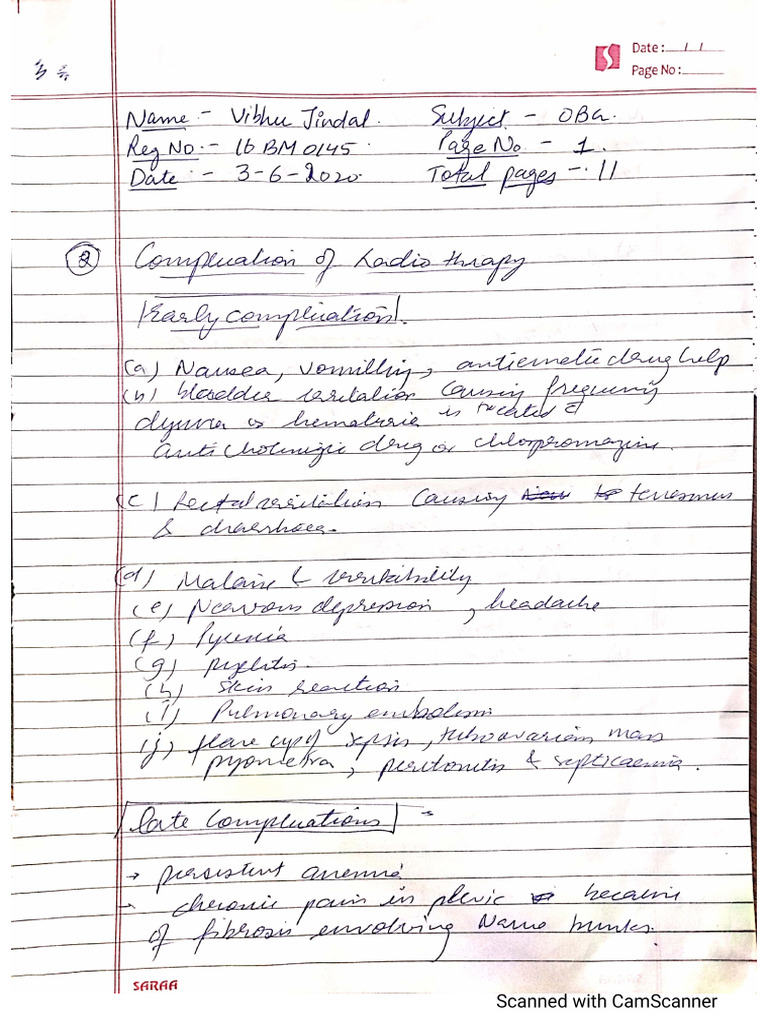 Date : / /
Page No :
Name :- Vibhu Jindal. Subject - OBG.
Reg No :- 16 BM 0145. Page No - 1.
Date :- 3-6-2020. Total pages - 11
② Complication of Radio thrapy
Early complication.
(a) Nausea, vomitting, antiemetic drug help
(b) bladder irritation causing frequency
dysuria or hematuria is treated c̄
anticholinergic drug or chlorpromazine.
(c) Rectal irritation causing to tenesmus
& diarrhoea.
(d) Malaise & irritability
(e) Nervous depression, headache
(f) Pyrexia
(g) pyelitis.
(h) Skin reaction
(i) Pulmonary embolism
(j) flare up of sepsis, tuboovarian mass
pyometra, peritonitis & septicaemia.
late complications -
→ persistent anemia
- chronic pain in plevic because
of fibrosis envolving Nerve trunks.
SARAA
Scanned with CamScanner